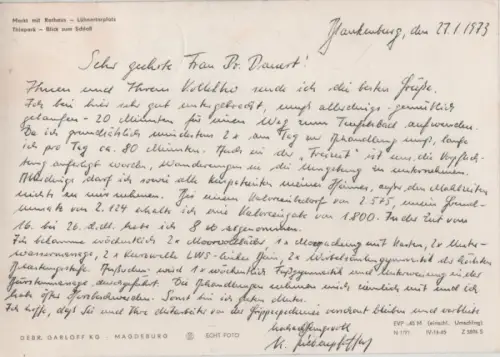 Markt mit Rathaus – Lühnertorplatz
Thiepark – Blick zum Schloß
Blankenburg, den 27.1.1973
Sehr geehrte Frau Dr. Danert!
Ihnen und Ihrem Kollektiv sende ich die besten Grüße.
Ich bin hier sehr gut untergebracht, muß allerdings - gemütlich
gelaufen - 20 Minuten für einen Weg zum Teufelsbad aufwenden.
Da ich grundsätzlich mindestens 2 x am Tag zur Behandlung muß, laufe
ich pro Tag ca. 80 Minuten. Auch in der "Freizeit" ist uns die Verpflich-
tung auferlegt worden, Wanderungen in die Umgebung zu unternehmen.
Allerdings darf ich sowie alle Kurpatienten meines Hauses, außer den Mahlzeiten
nichts zu uns nehmen. Bei einem Kalorienbedarf von 2.585, meinem Grund-
umsatz von 2.124 erhalte ich eine Kalorienzufuhr von 1.800. In der Zeit vom
16. bis 26. d.M. habe ich 8 abgenommen.
Ich bekomme wöchentlich 2 x 1 x Moorpackung mit Kasten, 2 x Unter-
wassermassage, 2 x Kurzwelle LWS - linkes Knie, 2 x Wirbelsäulengymnastik der höchsten
Belastungsstufe. Außerdem wird 1 x wöchentlich Fußgymnastik und Unterweisung in der
durchgeführt. Die Behandlungen nehmen mich ziemlich mit und ich
habe öfter Sonst bin ich guten Mutes.
Ich hoffe, daß Sie und Ihre Mitarbeiter von der Grippeepidemie verschont bleiben und verbleibe
hochachtungsvoll
GEBR. GARLOFF KG · MAGDEBURG
ECHT FOTO
EVP -,25 M (einschl. Umschlag)